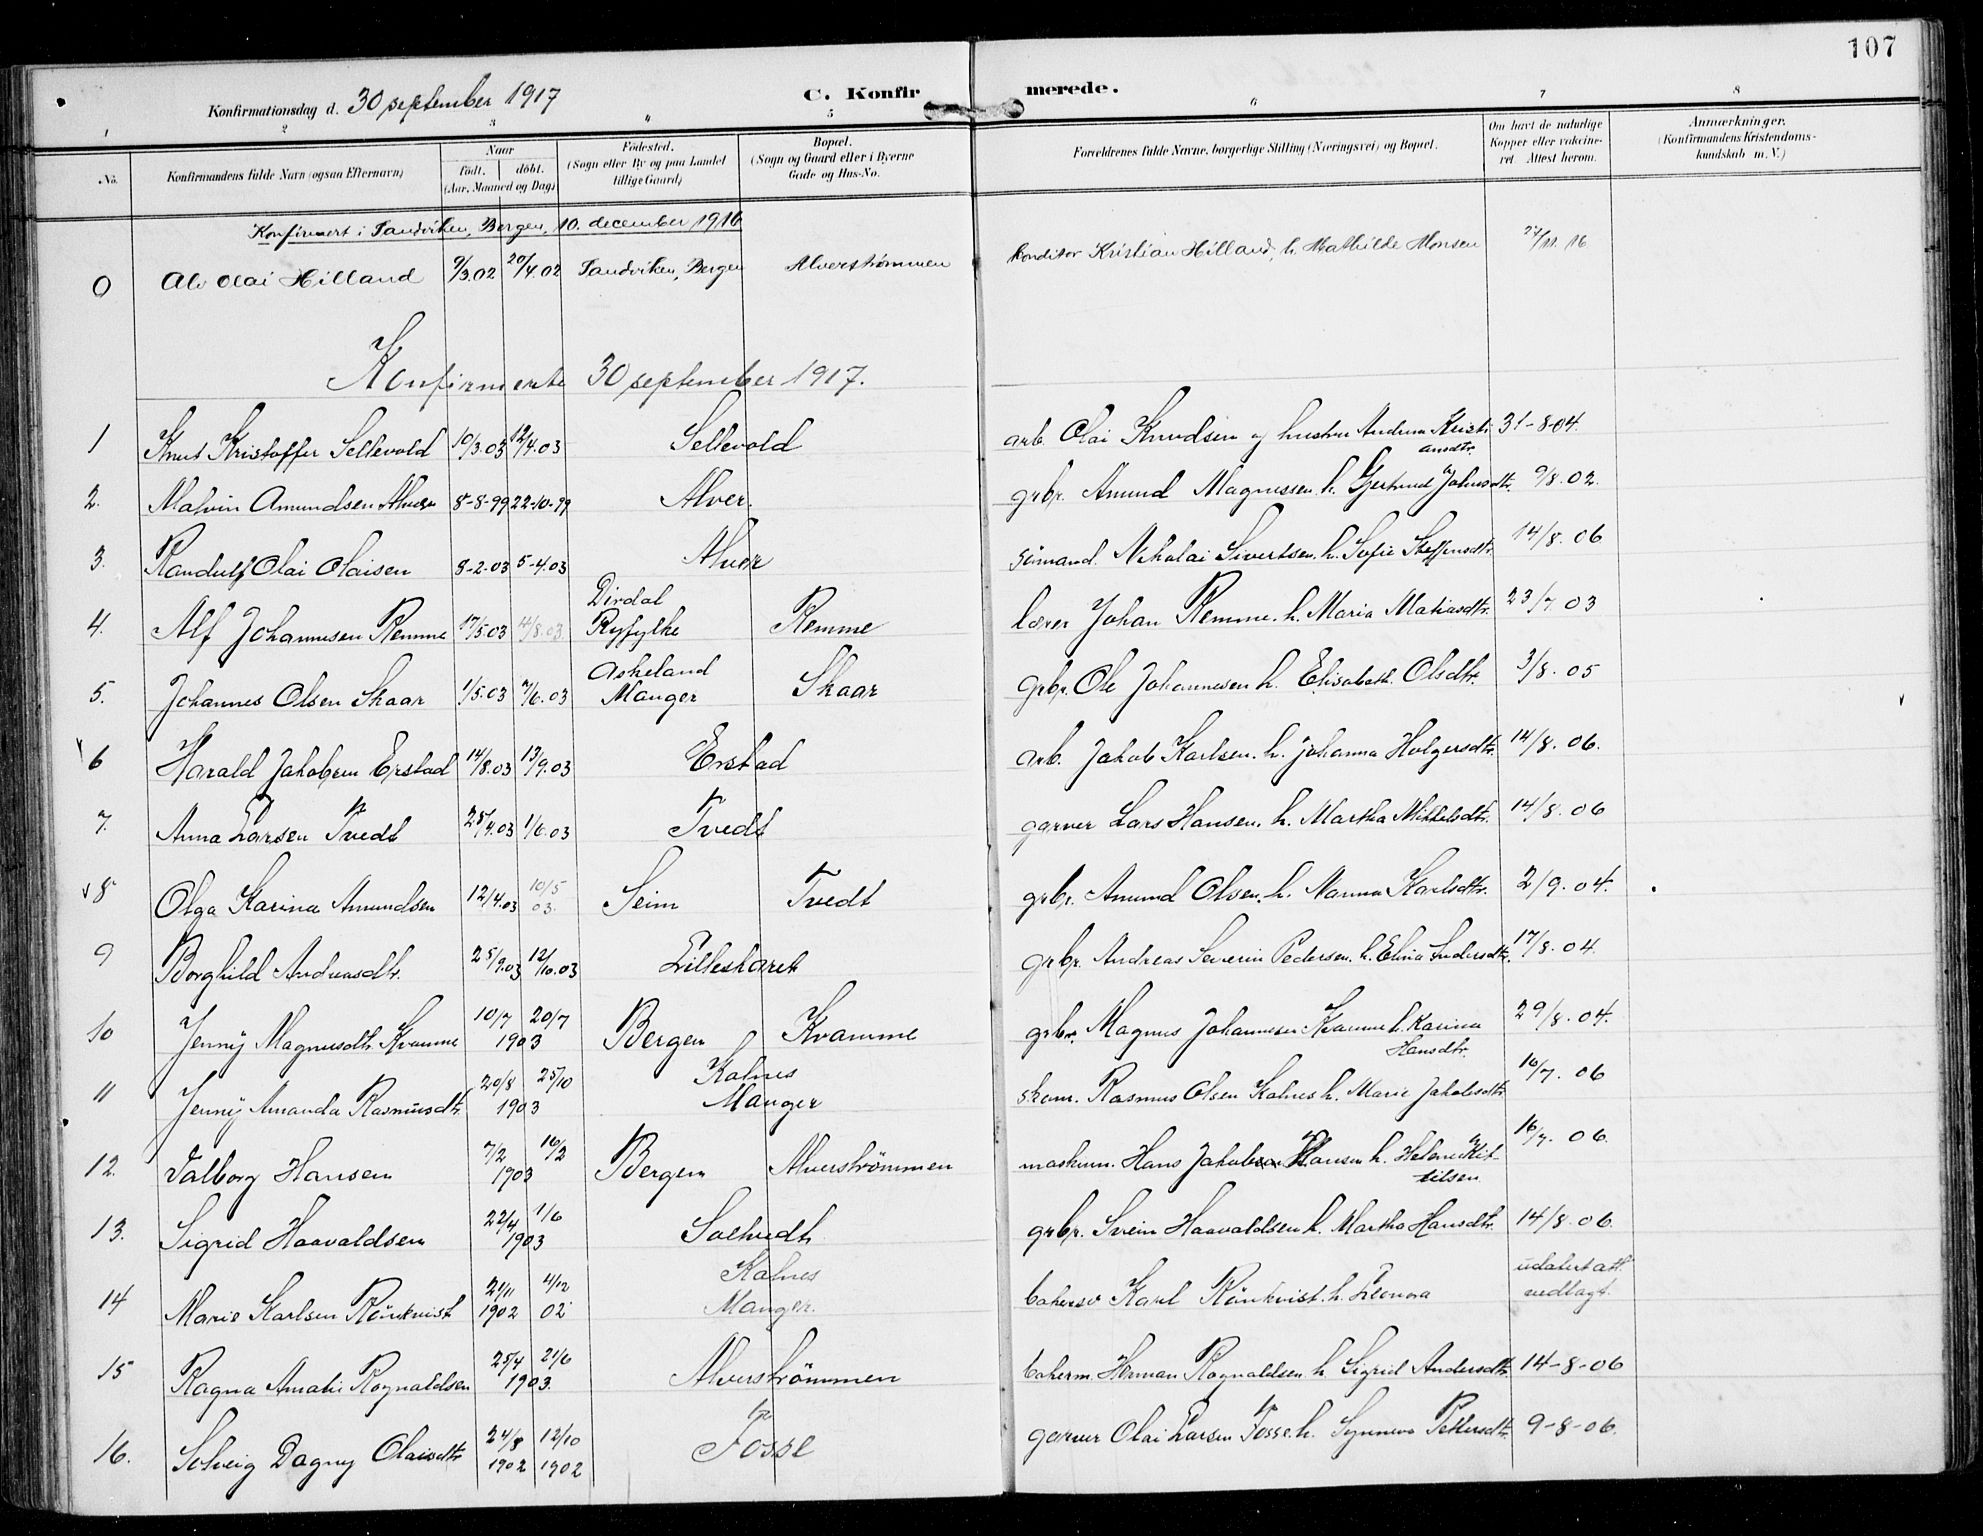 107
Konfirmationsdag d. 30 september 1917 C. Konfirmerede.
1 2 3 4 5 6 7 8
No. Konfirmandens fulde Navn (ogsaa Efternavn) Naar født. døbt. (Aar, Maaned og Dag) Fødested. (Sogn eller By og paa Landet tillige Gaard) Bopæl. (Sogn og Gaard eller i Byerne Gade og Hus-No. Forældrenes fulde Navne, borgerlige Stilling (Næringsvei) og Bopæl. Om havt de naturlige Kopper eller vakcineret. Attest herom. Anmærkninger. (Konfirmandens Kristendomskundskab m. V.)
Konfirmert i Sandviken, Bergen, 10. december 1916
0 Alv Olai Hilland 9/3.02 20/4.02 Sandviken, Bergen Alverstrømmen konditor Kristian Hilland, h. Mathilde Monsen 27/11.16
Konfirmerte 30 september 1917.
1 Knut Kristoffer Sellevold 10/3.03 12/4.03 Sellevold arb. Olai Knudsen og hustru Andrea Kristiansdtr. 31-8-04.
2. Malvin Amundsen Alver 8-8-99 22-10-99 Alver. grbr. Amund Magnussen h. Gertrud Johnsdtr. 9/8.02.
3. Randulf Olai Olaisen 8-2-03 5-4.03 Alver sømand. Nikolai Sivertsen. h. Sofie Steffensdtr. 14/8.06
4. Alf Johannesen Remme 17/5.03 4/8.03 Dirdal Ryfylke Remme lærer Johan Remme. h. Maria Matiasdtr. 23/7.03
5. Johannes Olsen Skaar 1/5.03 7/6.03 Askeland Manger Skaar grbr. Ole Johannesen h. Elisabeth. Olsdtr. 3/8.05
6 Harald Jakobsen Erstad 14/8.03 13/9.03 Erstad arb. Jakob Karlsen. h. Johanna Holgersdtr. 14/8.06.
7. Anna Larsen Tvedt 25/4.03 1/6.03 Tvedt garver Lars Hansen. h. Martha Mikkelsdtr. 14/8.06
8 Olga Karina Amundsen 12/4.03 10/5 03. Seim Tvedt grbr. Amund Olsen. h. Nanna Karlsdtr. 2/9.04.
9 Borghild Andreasdtr. 25/9.03 12/10.03 Lilleskaret grbr. Andreas Severin Pedersen. h. Elina 17/8.04
10 Jenny Magnusdtr. Kvamme 10/7 20/7 1903 Bergen Kvamme grbr. Magnus Johannesen Kvamme h. Karina Hansdtr. 29/8.04.
11 Jenny Amanda Rasmusdtr. 20/8 25/10 1903 Kalnes Manger skom. Rasmus Olsen Kalnes h. Marie Jakobsdtr. 16/7.06
12. Valborg Hansen 7/2 16/2 1903 Bergen Alverstrømmen maskinm. Hans Jakob Hansen h. Helene Kittilsen 16/7.06.
13. Sigrid Haavaldsen 22/4 1/6 1903 Soltvedt grbr. Svein Haavaldsen h. Martha Hansdtr. 14/8.06.
14 Marie Karlsen Rönkvist 21/11 1902 4/12 02 Kalnes Manger. Karl Rönkvist. h. Leonora udatert att. vedlagt.
15 Ragna Amalie Rognaldsen 25/4 21/6 1903. Alverstrømmen bakerm. Herman Rognaldsen. h. Sigrid Andersdtr. 14-8-06
16. Solveig Dagny Olaisdtr. 24/8 1902 12/10 1902 Fosse garver Olai Larsen Fosse. h. Synneva Pettersdtr. 9-8-06.